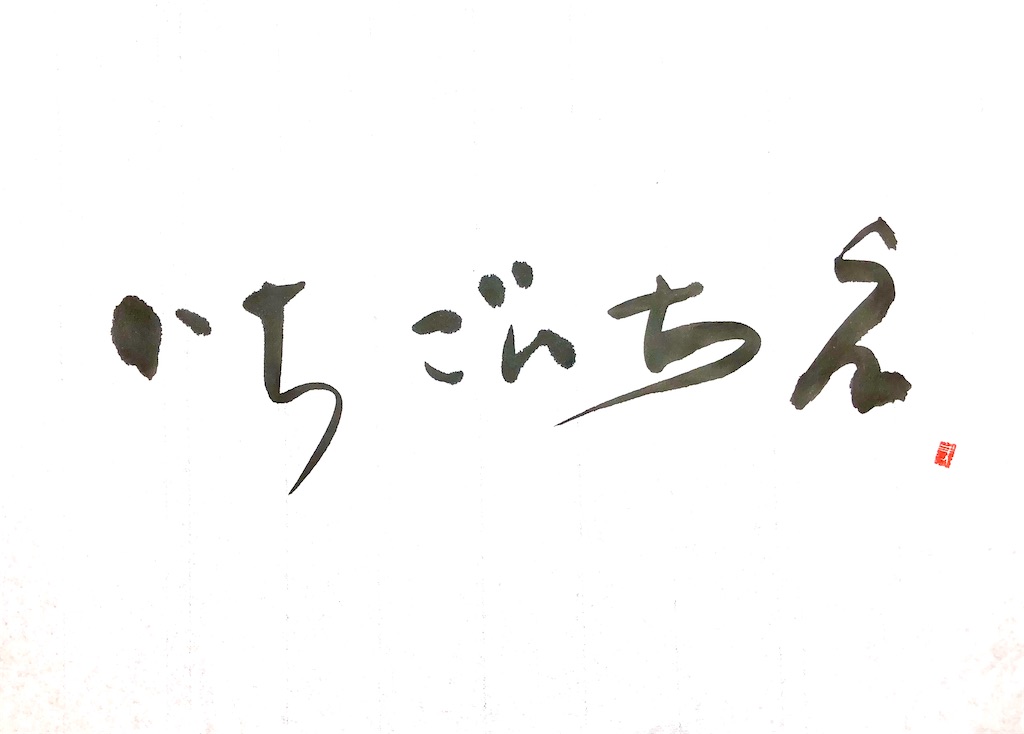 いちごいちえ